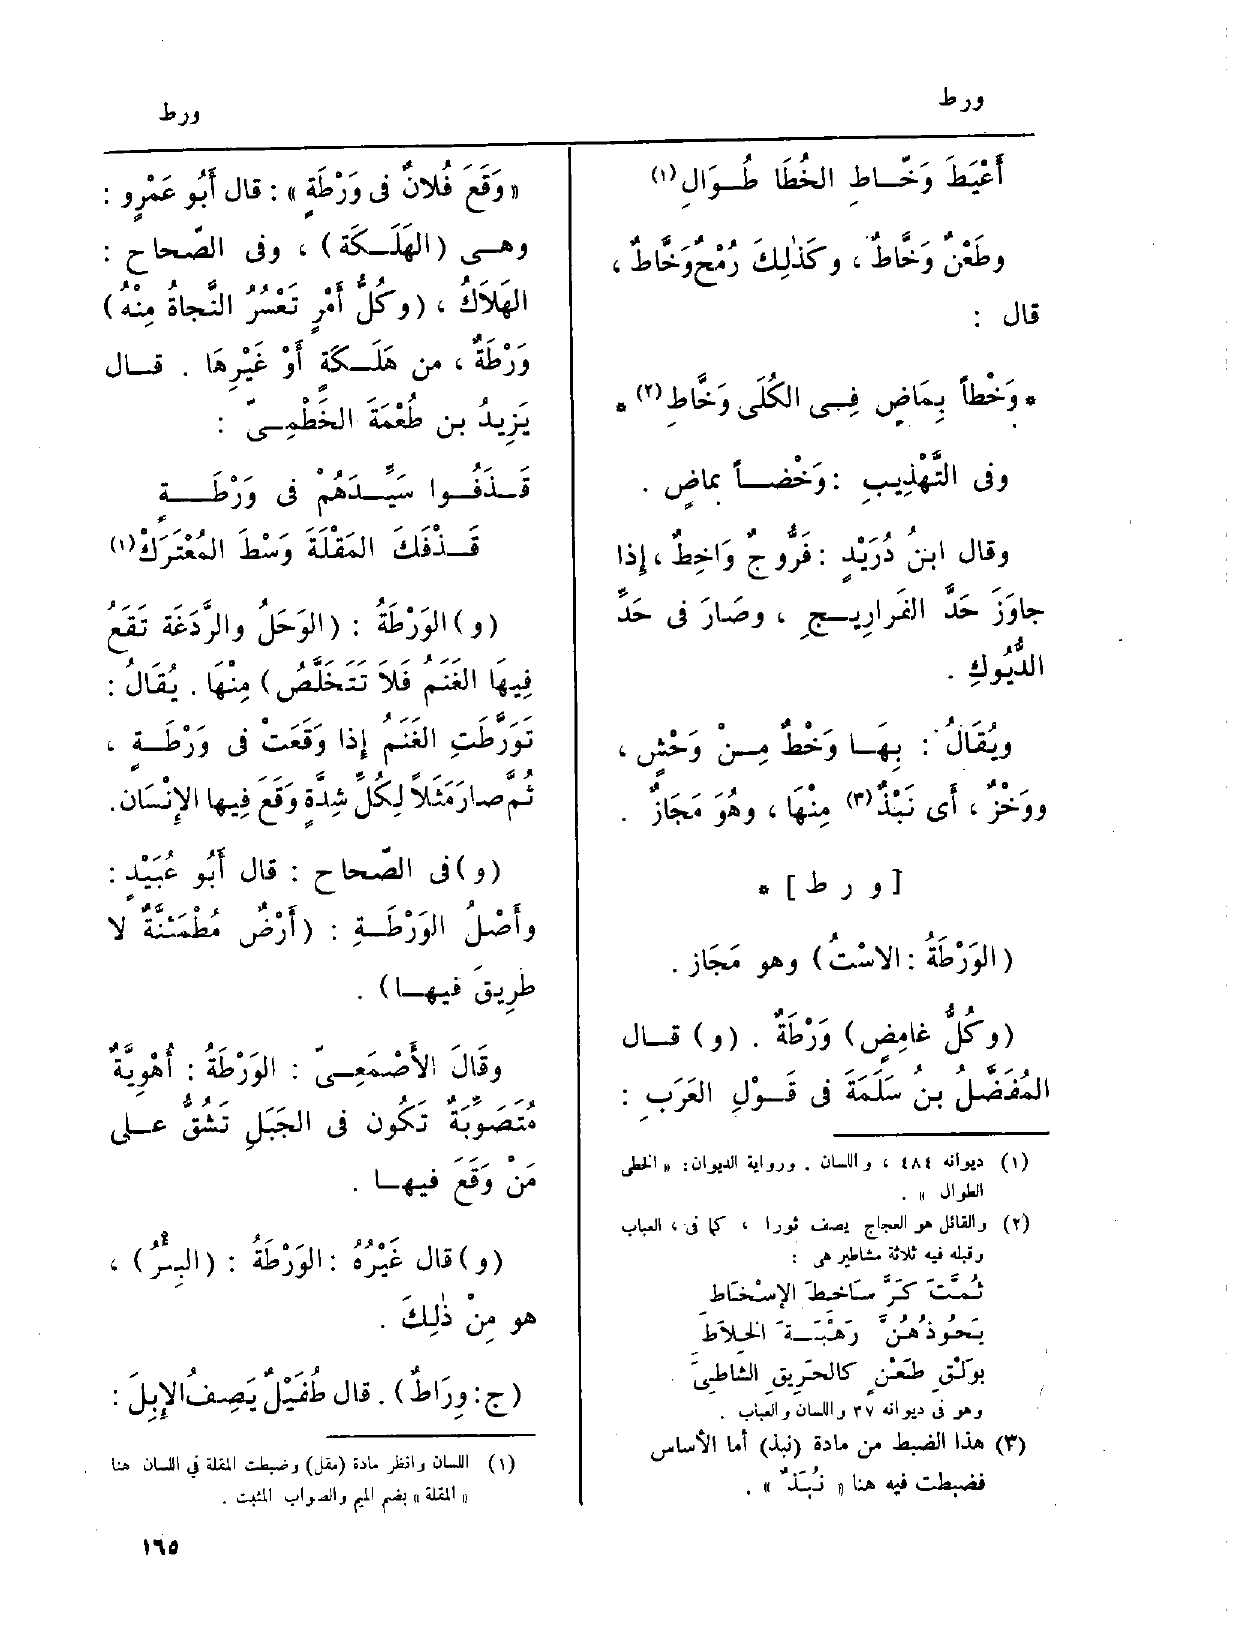 ورط
ورط
أَعْيَطَ وَخَّاطِ الخُطَا طُوَالِ (١)
وطَعْنٌ وَخَّاطٌ ، وكَذٰلِكَ رُمْحٌ وَخَّاطٌ ،
قال :
* وَخْطاً بِمَاضٍ فِى الكُلَى وَخَّاطِ (٢) *
وفى التَّهْذِيبِ : وَخْضاً بماضٍ .
وقال ابنُ دُرَيْدٍ : فَرُّوجٌ وَاخِطٌ ، إذا
جاوَزَ حَدَّ الفَرارِيجِ ، وصَارَ فى حَدِّ
الدُّيُوكِ .
ويُقَالُ : بِهَا وَخْطٌ مِنْ وَحْشٍ ،
ووَخْزٌ ، أى نَبْذٌ (٣) مِنْهَا ، وهُوَ مَجَازٌ .
[ و ر ط ] *
(الوَرْطَةُ : الاسْتُ) وهو مَجَاز .
(وكُلُّ غامِضٍ) وَرْطَةٌ . (و) قال
المُفَضَّلُ بنُ سَلَمَةَ فى قَوْلِ العَرَبِ :
(١) ديوانه ٤٨٤ ، واللسان . ورواية الديوان: « الخطى
الطوال » .
(٢) والقائل هو العجاج يصف ثورا ، كما فى ، العباب
وقبله فيه ثلاثة مشاطير هى :
ثُمَّتَ كَرَّ سَاخِطَ الإسْخَاطِ
يَحُوذُهُنَّ رَهْبَةَ الخِلَاطِ
بوَلْقِ طَعْنٍ كالحَرِيقِ الشَّاطِى
وهو فى ديوانه ٣٧ واللسان والعباب .
(٣) هذا الضبط من مادة (نبذ) أما الأساس
فضبطت فيه هنا « نُبَذٌ » .
« وَقَعَ فُلانٌ فى وَرْطَةٍ » : قال أَبُو عَمْرٍو :
وهى (الهَلَكَة) ، وفى الصّحاح :
الهَلَاكُ ، (وكُلُّ أَمْرٍ تَعْسُرُ النَّجاةُ مِنْهُ)
وَرْطَةٌ ، من هَلَكَةٍ أَوْ غَيْرِهَا . قال
يَزِيدُ بن طُعْمَةَ الخَطْمِىّ :
قَذَفُوا سَيِّدَهُمْ فى وَرْطَةٍ
قَذْفَكَ المَقْلَةَ وَسْطَ المُعْتَرَكْ (١)
(و) الوَرْطَةُ : (الوَحَلُ والرَّدَغَة تَقَعُ
فِيهَا الغَنَمُ فَلاَ تَتَخَلَّصُ) مِنْهَا . يُقَالُ :
تَوَرَّطَتِ الغَنَمُ إذا وَقَعَتْ فى وَرْطَةٍ ،
ثُمَّ صارَ مَثَلاً لِكُلِّ شِدَّةٍ وَقَعَ فِيها الإِنْسَان .
(و) فى الصّحاح : قال أَبُو عُبَيْدٍ :
وأَصْلُ الوَرْطَةِ : (أَرْضٌ مُطْمَئِنَّةٌ لا
طَرِيقَ فيها) .
وقَالَ الأَصْمَعِىّ : الوَرْطَةُ : أُهْوِيَّةٌ
مُتَصَوِّبَةٌ تكُون فى الجَبَلِ تَشُقُّ على
مَنْ وَقَعَ فيها .
(و) قال غَيْرُهُ : الوَرْطَةُ : (البِئْرُ) ،
هو مِنْ ذٰلِكَ .
(ج: وِرَاطٌ) . قال طُفَيْلٌ يَصِفُ الإِبِلَ :
(١) اللسان وانظر مادة (مقل) وضبطت المقلة فى اللسان هنا
« المقلة » بضم الميم والصواب المثبت .
١٦٥